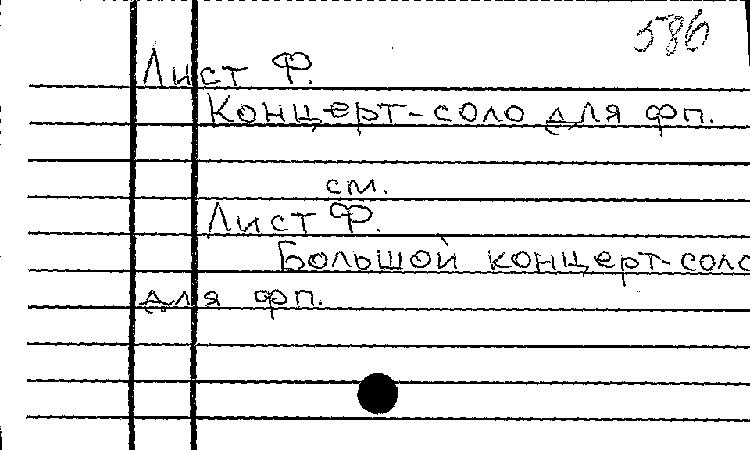 586
Лист Ф.
Концерт-соло для фп.
см.
Лист Ф.
Большой концерт-соло
для фп.